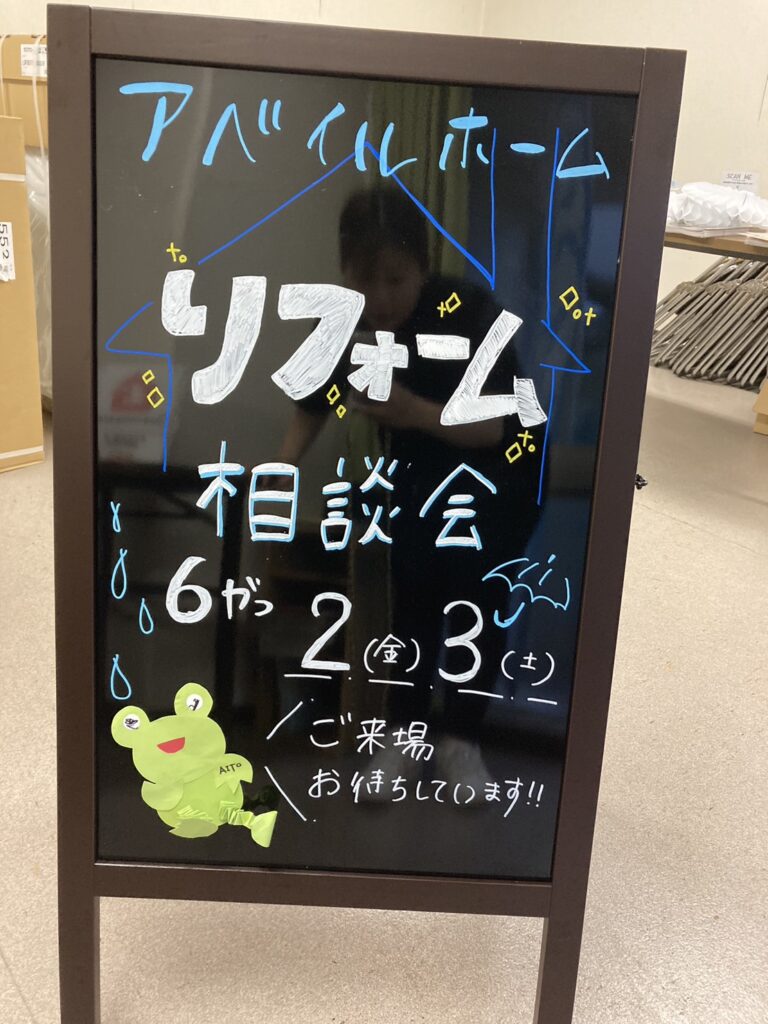 アベイルホーム
リフォーム
相談会
6がつ
2(金)3(土)
ご来場
お待ちしています!!
AITO
552
SCAN ME